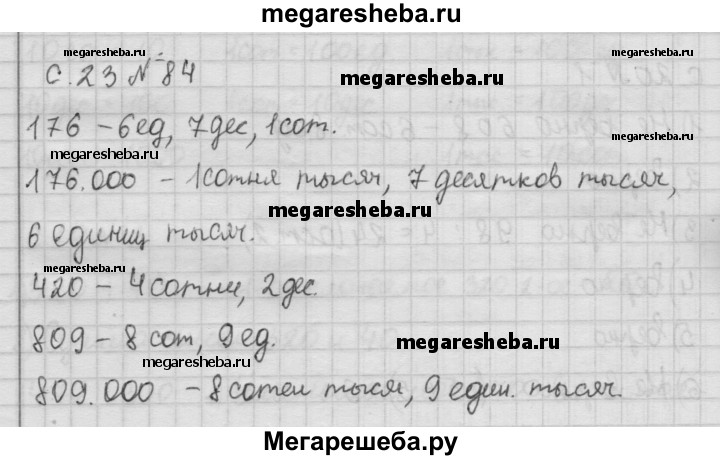 megaresheba.ru
megaresheba.ru
с. 23 № 84
megaresheba.ru
176 – 6ед, 7дес, 1сот.
megaresheba.ru
megaresheba.ru
176.000 – 1сотня тысяч, 7 десятков тысяч,
megaresheba.ru
6 единиц тысяч.
megaresheba.ru
420 – 4 сотни, 2 дес.
809 – 8 сот, 9 ед.
megaresheba.ru
megaresheba.ru
809.000 – 8 сотен тысяч, 9 един. тысяч.
Мегарешеба.ру